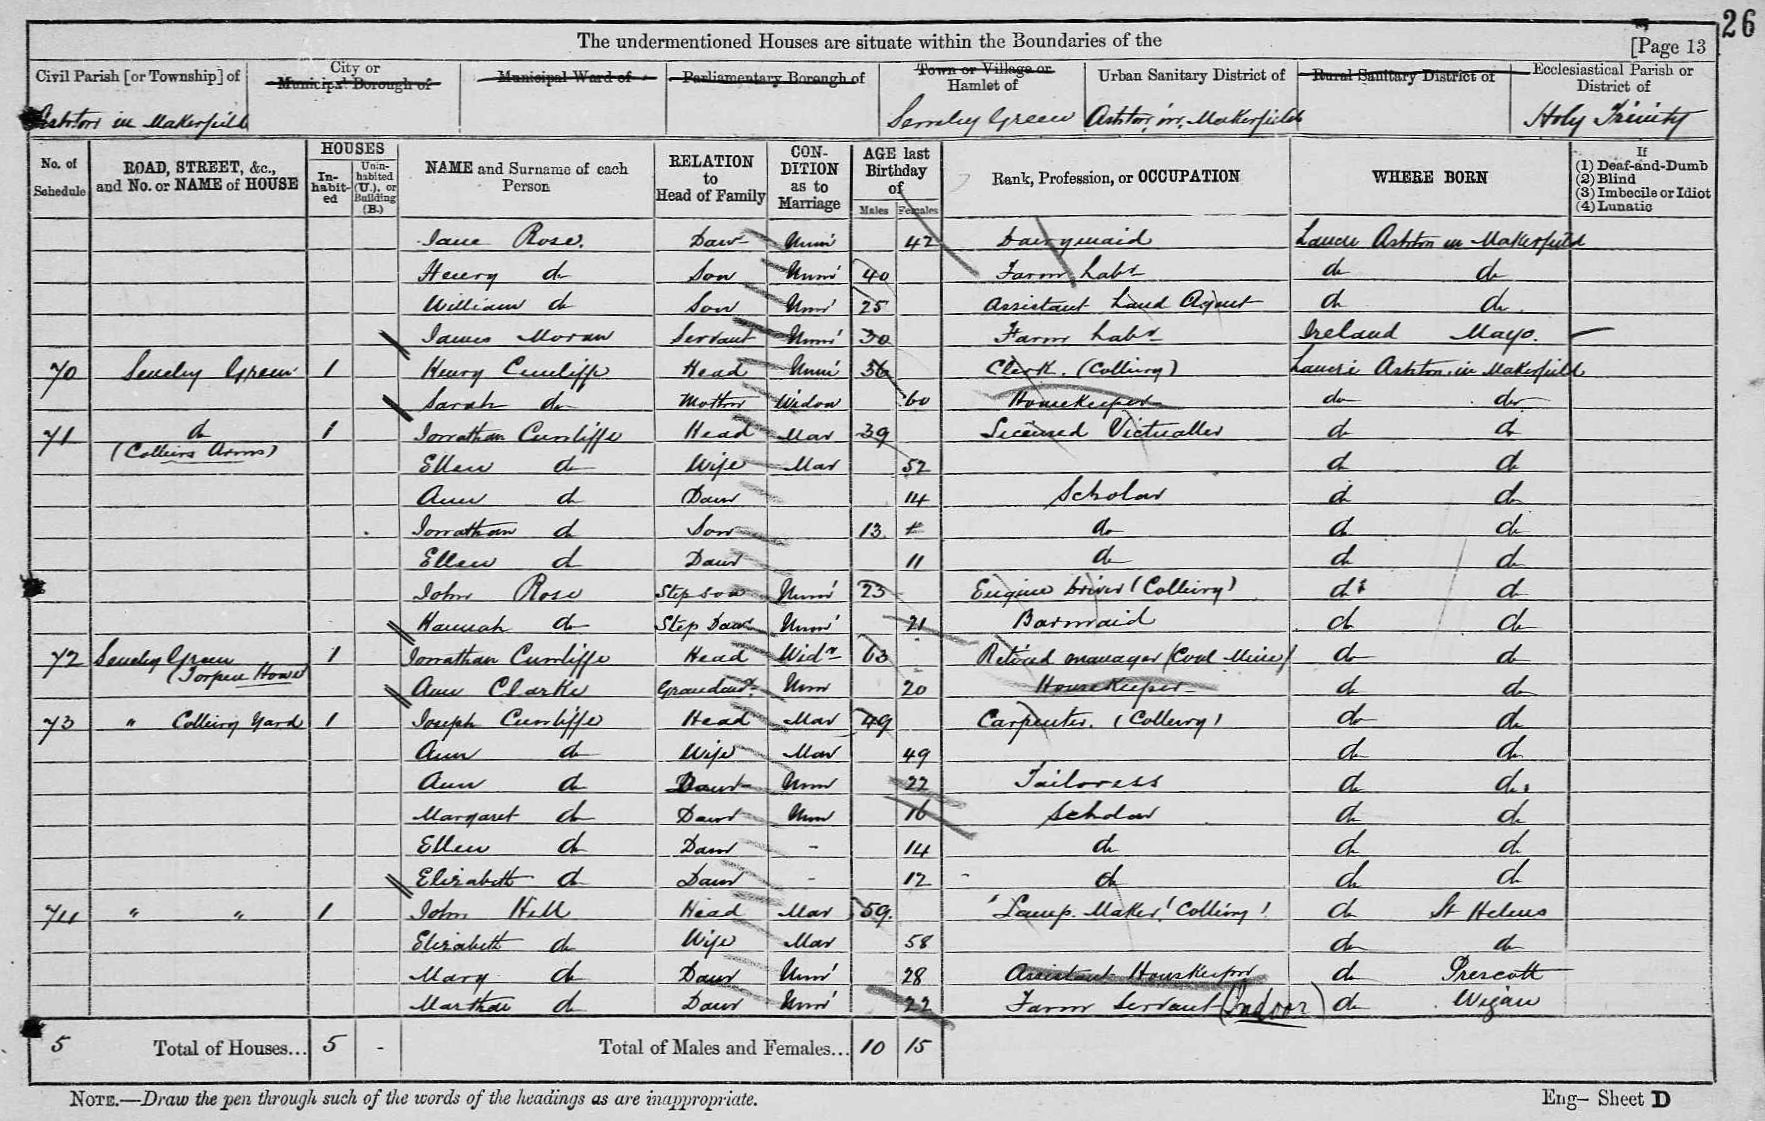 26
The undermentioned Houses are situate within the Boundaries of the [Page 13
Civil Parish [or Township] of City or Municipal Borough of Municipal Ward of Parliamentary Borough of Town or Village or Hamlet of Urban Sanitary District of Rural Sanitary District of Ecclesiastical Parish or District of
Ashton in Makerfield Senely Green Ashton in Makerfield Holy Trinity
No. of Schedule ROAD, STREET, &c., and No. or NAME of HOUSE HOUSES Inhabited Uninhabited (U.), or Building (B.) NAME and Surname of each Person RELATION to Head of Family CONDITION as to Marriage AGE last Birthday of Males Females Rank, Profession, or OCCUPATION WHERE BORN If (1) Deaf-and-Dumb (2) Blind (3) Imbecile or Idiot (4) Lunatic
Jane Rose. Daur Unm 42 Dairymaid Lancr Ashton in Makerfield
Henry do Son Unm 40 Farm Labr do do
William do Son Unm 25 Assistant Land Agent do do
James Moran Servant Unm 30 Farm Labr Ireland Mayo.
70 Senely Green 1 Henry Cunliffe Head Unm 36 Clerk. (Colliery) Lancr Ashton in Makerfield
Sarah do Mother Widow 60 Housekeeper do do
71 do (Colliers Arms) 1 Jonathan Cunliffe Head Mar 39 Licensed Victualler do do
Ellen do Wife Mar 52 do do
Ann do Daur 14 Scholar do do
Jonathan do Son 13 do do do
Ellen do Daur 11 do do do
John Rose Stepson Unm 23 Engine Driver (Colliery) do do
Hannah do Step Daur Unm 21 Barmaid do do
72 Senely Green (Torpen House 1 Jonathan Cunliffe Head Widr 63 Retired manager (Coal Mine) do do
Ann Clarke Grandaur Unm 20 Housekeeper do do
73 " Colliery Yard 1 Joseph Cunliffe Head Mar 49 Carpenter. (Colliery) do do
Ann do Wife Mar 49 do do
Ann do Daur Unm 22 Tailoress do do
Margaret do Daur Unm 16 Scholar do do
Ellen do Daur - 14 do do do
Elizabeth do Daur - 12 do do do
74 " " 1 John Hill Head Mar 59 Lamp Maker (Colliery) do St Helens
Elizabeth do Wife Mar 58 do do
Mary do Daur Unm 28 Assistant Houskeeper do Prescott
Martha do Daur Unm 22 Farm Servant (Indoor) do Wigan
5 Total of Houses... 5 - Total of Males and Females... 10 15
NOTE.—Draw the pen through such of the words of the headings as are inappropriate. Eng— Sheet D